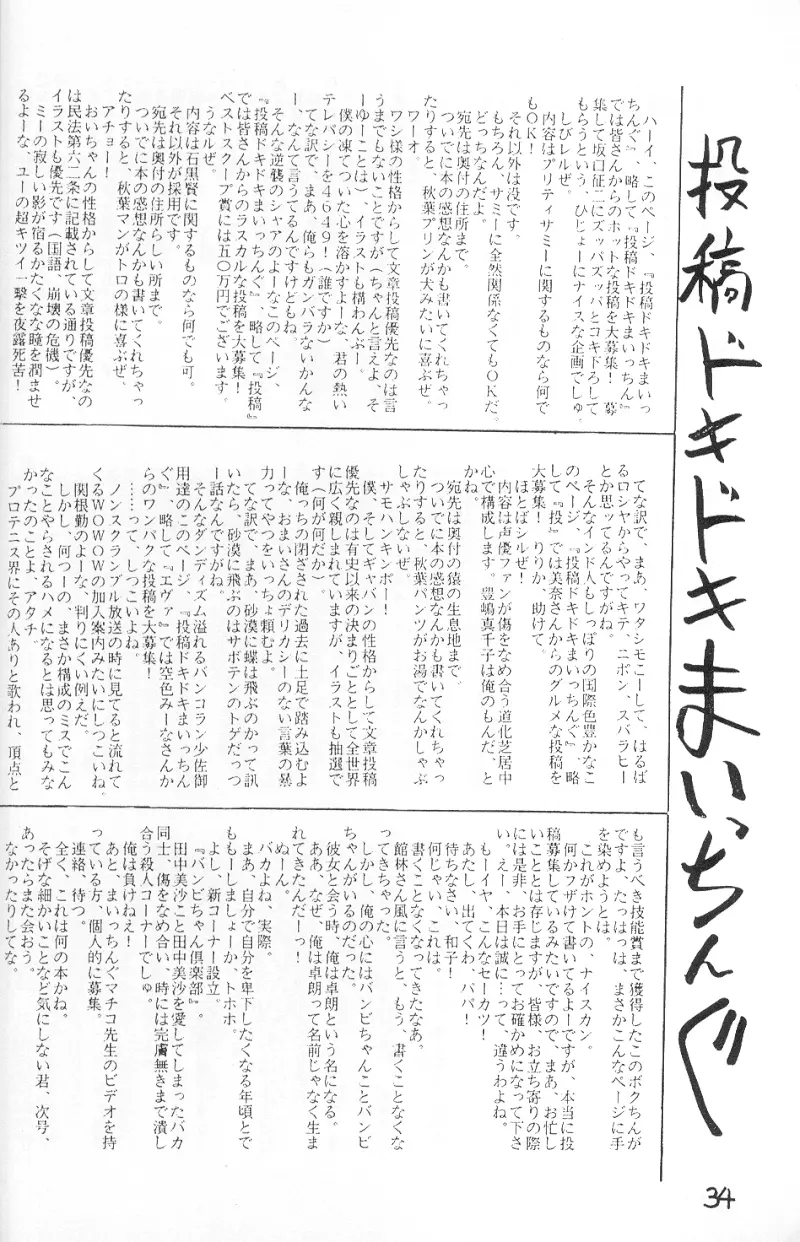 投稿ドキドキまいっちんぐ
ハーイ、このページ、『投稿ドキドキまいっ
ちんぐ』、略して『投稿ドキドキまいっちん』
では皆さんからのホットな投稿を大募集！　募
集して坂口征二にズッパズッパとコキ下ろして
もらうという、ひじょーにナイスな企画でしゅ。
しびレルぜ。
内容はプリティサミーに関するものなら何で
もＯＫ！
それ以外は没です。
もちろん、サミーに全然関係なくてもＯＫだ。
どっちなんだよ。
宛先は奥付の住所まで。
ついでに本の感想なんかも書いてくれちゃっ
たりすると、秋葉プリンが犬みたいに喜ぶぜ。
ワーオ。
ワシ様の性格からして文章投稿優先なのは言
うまでもないことですが（ちゃんと言えよ、そ
ーゆーことは）、イラストも構わんぶー。
僕の凍てついた心を溶かすよーな、君の熱い
テレパシーを４６４９！（誰ですか）
てな訳で、まあ、俺らもガンバラないかんな
ー、なんて言うてるんですけどもね。
そんな逆襲のシャアのよーなこのページ、
『投稿ドキドキまいっちんぐ』、略して『投稿』
では皆さんからのラスカルな投稿を大募集！
ベストスクープ賞には５０万円でございます。
うなルぜ。
内容は石黒賢に関するものなら何でも可。
それ以外が採用です。
宛先は奥付の住所らしい所まで。
ついでに本の感想なんかも書いてくれちゃっ
たりすると、秋葉マンがトロの様に喜ぶぜ、
アチョー！
おいちゃんの性格からして文章投稿優先なの
は民法第六二条に記載されている通りですが、
イラストも優先です（国語、崩壊の危機）。
ミーの寂しい影が宿るかたくなな瞳を潤ませ
るよーな、ユーの超キツイ一撃を夜露死苦！
てな訳で、まあ、ワタシモニーして、はるば
るロシヤからやってキテ、ニポン、スバラヒー
とか思ってるんですがね。
そんなインド人もしっぽりの国際色豊かなこ
のページ、『投稿ドキドキまいっちんぐ』、略
して『投』では美奈さんからのグルメな投稿を
大募集！　りりか、助けて。
ほとばシルぜ！
内容は声優ファンが傷をなめ合う道化芝居中
心で構成します。豊嶋真千子は俺のもんだ、と
かね。
宛先は奥付の猿の生息地まで。
ついでに本の感想なんかも書いてくれちゃっ
たりすると、秋葉パンツがお湯でなんかしゃぶ
しゃぶしないぜ。
サモハンキンポー！
僕、そしてギャバンの性格からして文章投稿
優先なのは有史以来の決まりごととして全世界
に広く親しまれていますが、イラストも抽選で
す（何が何だか）。
俺っちの閉ざされた過去に土足で踏み込むよ
ーな、おまいさんのデリカシーのない言葉の暴
力ってやつをいっちょ頼むよ。
てな訳で、まあ、砂漠に蝶は飛ぶのかって訊
いたら、砂漠に飛ぶのはサボテンのトゲだっつ
ー話なんですがね。
そんなダンディズム溢れるバンコラン少佐御
用達のこのページ、『投稿ドキドキまいっちん
ぐ』、略して『エヴァ』では空色みーなさんか
らのワンパクな投稿を大募集！
……って、しつこいよね。
ノンスクランブル放送の時に見てると流れて
くるＷＯＷＯＷの加入案内みたいにしつこいね。
関根勤のよーな、判りにくい例えだ。
しかし、何つーの、まさか構成のミスでこん
なことやらされるハメになるとは思ってもみな
かったのことよ、アタチ。
プロテニス界にその人ありと歌われ、頂点と
も言うべき技能賞まで獲得したこのボクちんが
ですよ、たっはっは、まさかこんなページに手
を染めようとは。
これがホントの、ナイスカン。
何かフザけて書いてるよーですが、本当に投
稿募集しているみたいですので、まあ、お忙し
いこととは存じますが、皆様、お立ち寄りの際
には是非、お手にとってお確かめになって下さ
い。えー、本日は誠に…って、違うわよね。
もーイヤ、こんなセーカツ！
あたし、出てくわ、パパ！
待ちなさい、和子！
何じゃい、これは。
書くことなくなってきたなあ。
館林さん風に言うと、もう、書くことなくな
ってきちゃった。
しかし、俺の心にはバンビちゃんことバンビ
ちゃんがいるのだった。
彼女と会う時、俺は卓朗という名になる。
ああ、なぜ、俺は卓朗って名前じゃなく生ま
れてきたんだーっ！
ぬーん。
バカよね、実際。
まあ、自分で自分を卑下したくなる年頃とで
ももーしましょーか、トホホ。
よし、新コーナー設立。
『バンビちゃん倶楽部』。
田中美沙こと田中美沙を愛してしまったバカ
同士、傷をなめ合い、時には完膚無きまで潰し
合う殺人コーナーでしゅ。
俺は負けねえ！
あと、まいっちんぐマチコ先生のビデオを持
っている方、個人的に募集。
連絡、待つ。
全く、これは何の本かね。
そげな細かいことなど気にしない君、次号、
あったらまた会おう。
なかったりしてな。
34